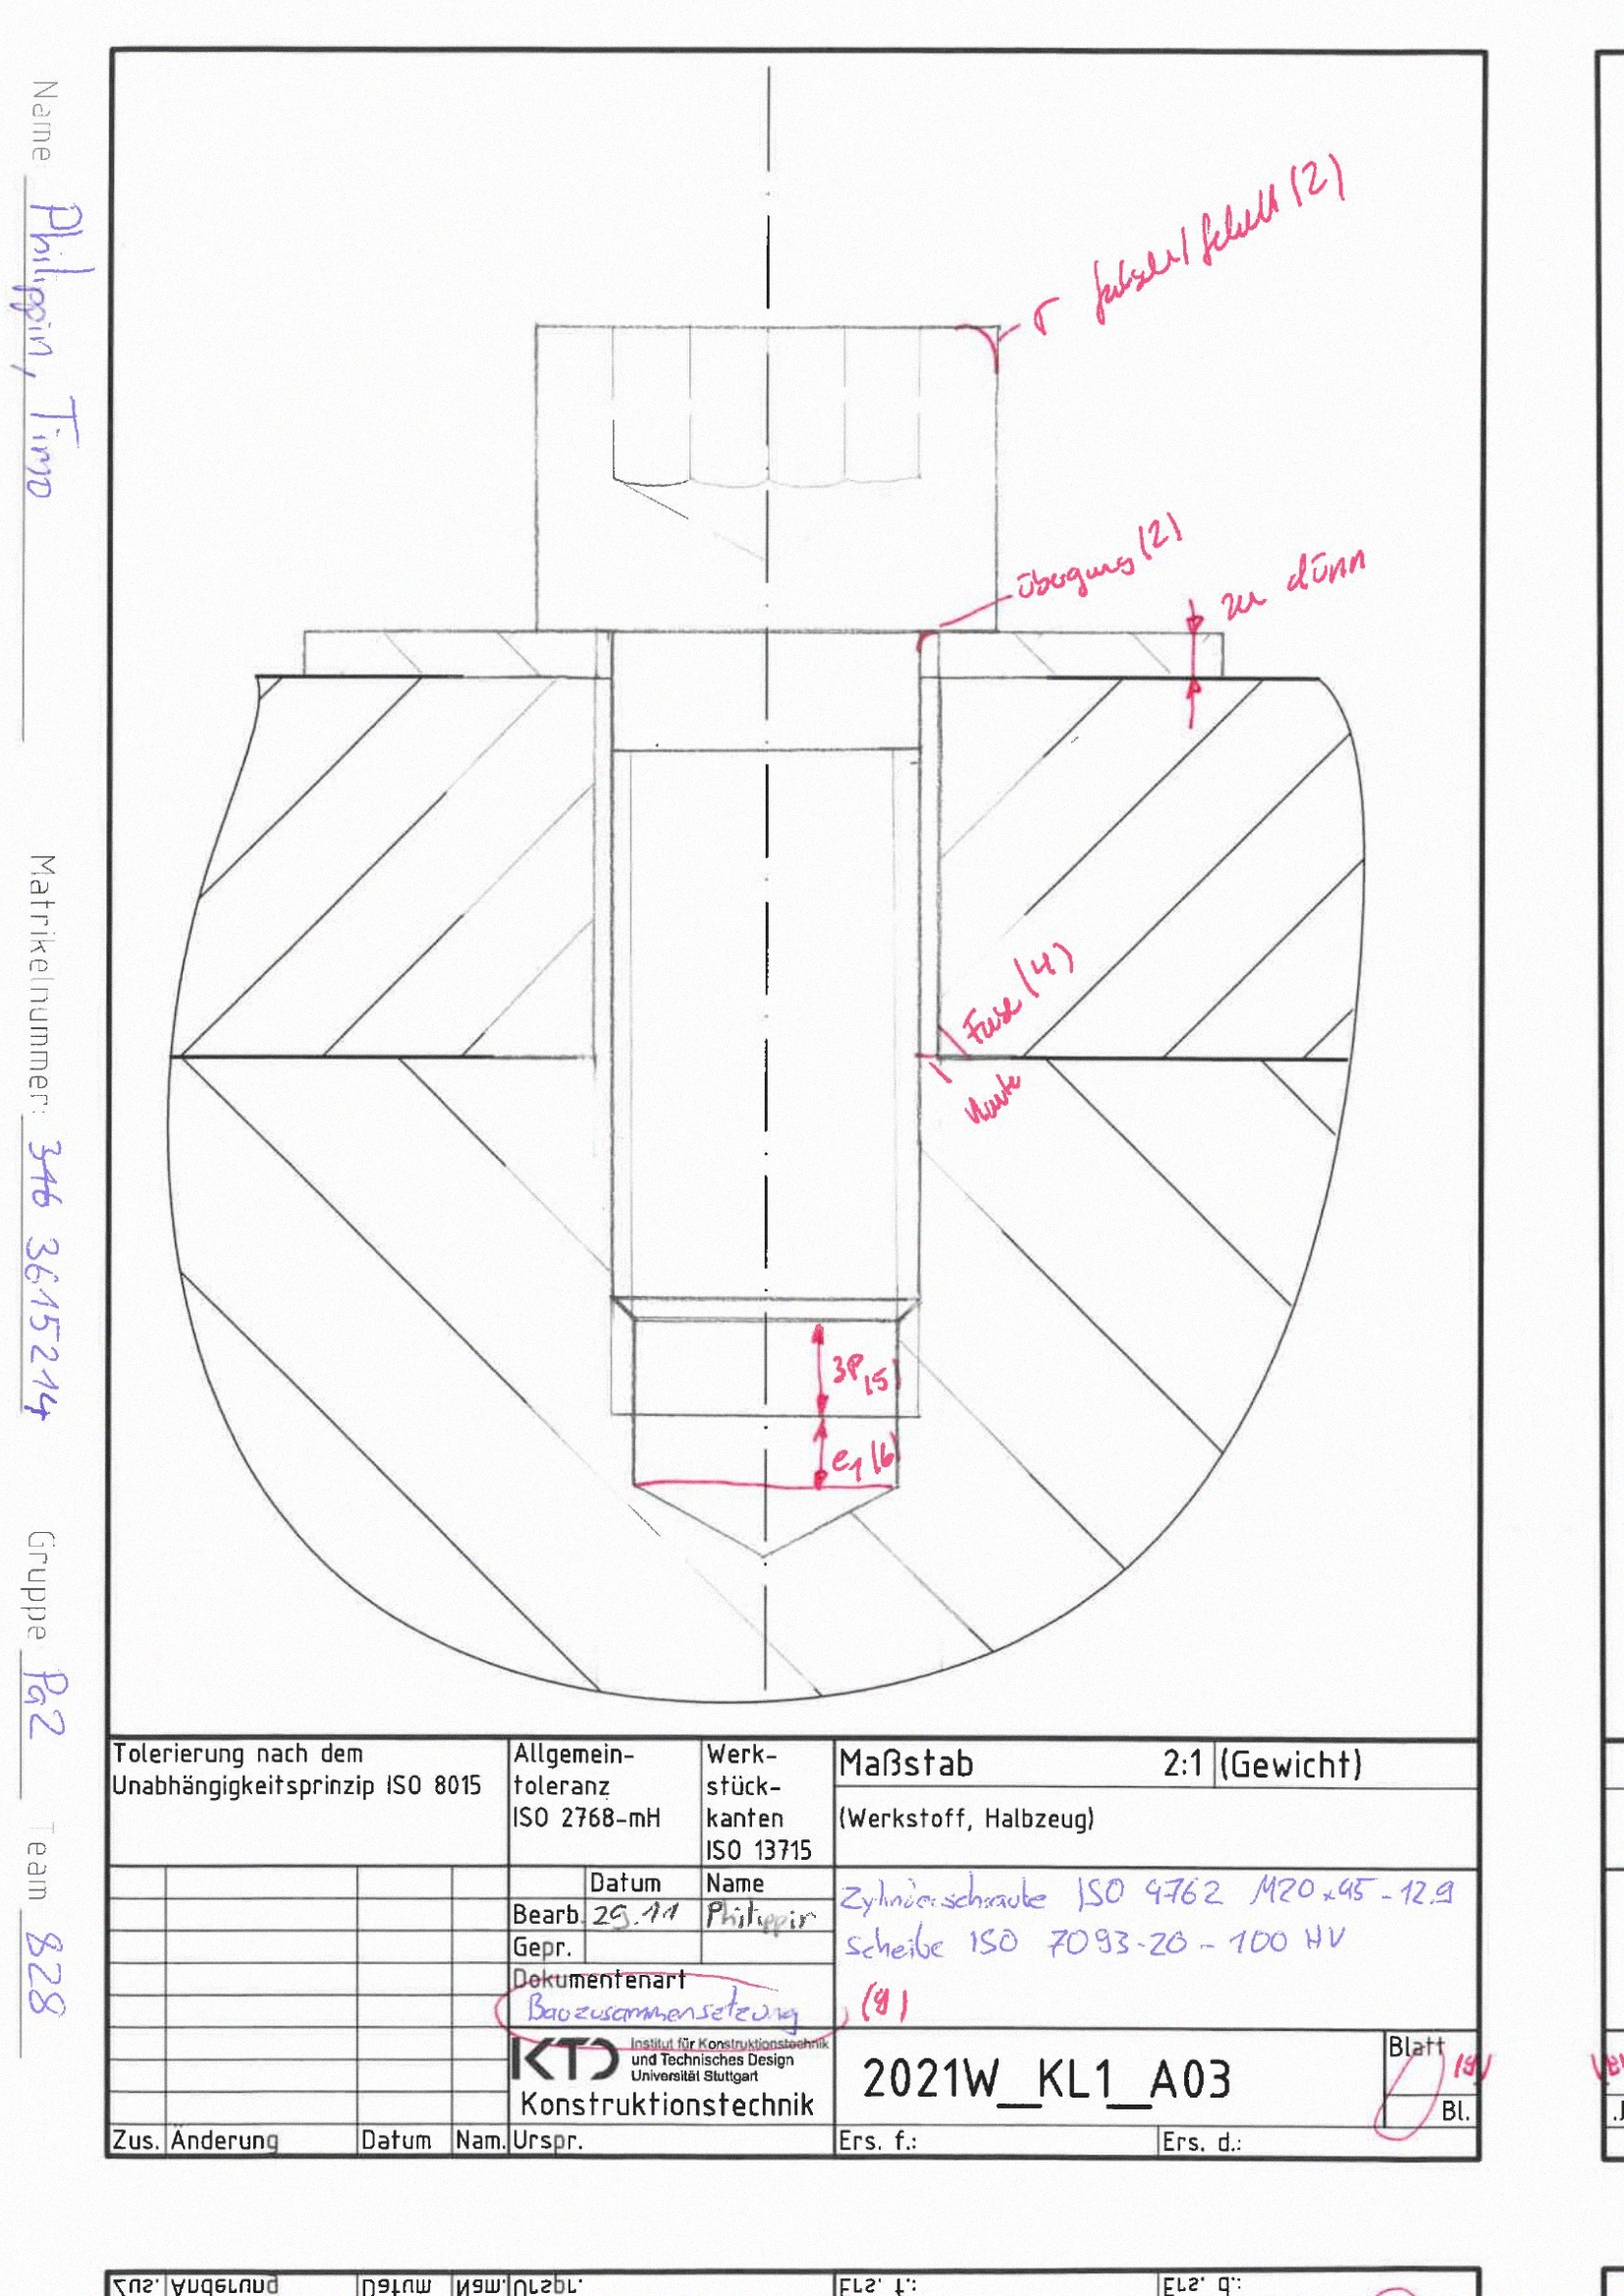 Name Philippin, Timo
Matrikelnummer: 3615214
Gruppe Pa2
Team 828
r falsch/fehlt (2)
Übergang (2)
zu dünn
Fase (4)
Kante
3P (5)
e1 (6)
Tolerierung nach dem
Unabhängigkeitsprinzip ISO 8015
Allgemein-
toleranz
ISO 2768-mH
Werk-
stück-
kanten
ISO 13715
Maßstab 2:1 (Gewicht)
(Werkstoff, Halbzeug)
Datum Name
Bearb. 29.11 Philippin
Gepr.
Zylinderschraube ISO 4762 M20x45-12.9
Scheibe ISO 7093-20-100 HV
Dokumentenart
Bauzusammensetzung (9)
KTD Institut für Konstruktionstechnik
und Technisches Design
Universität Stuttgart
Konstruktionstechnik
2021W_KL1_A03
Blatt (9)
Bl.
Zus. Änderung Datum Nam. Urspr. Ers. f.: Ers. d.:
Zus. Änderung Datum Nam. Urspr. Ers. f.: Ers. d.: